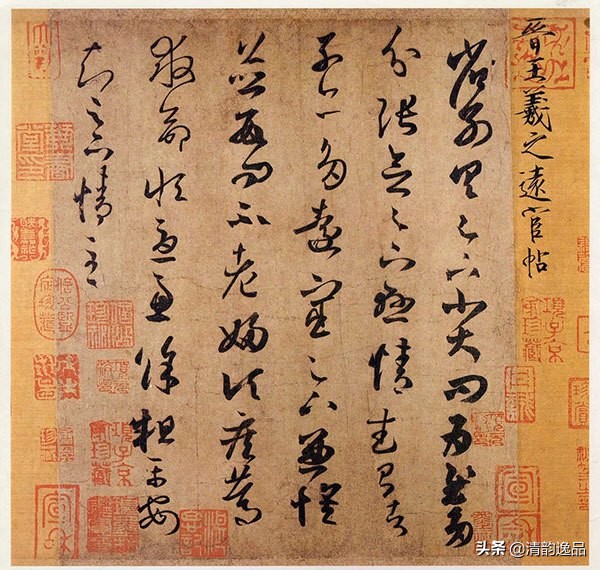 晉王羲之遠宦帖
省別具足下小大問為慰多
分張念足下懸情武昌諸
子亦多遠宦足下兼懷
並數問不老婦頃疾篤
救命恒憂慮餘粗平安
知足下情至
項子京家珍藏
头条 @清韵逸品